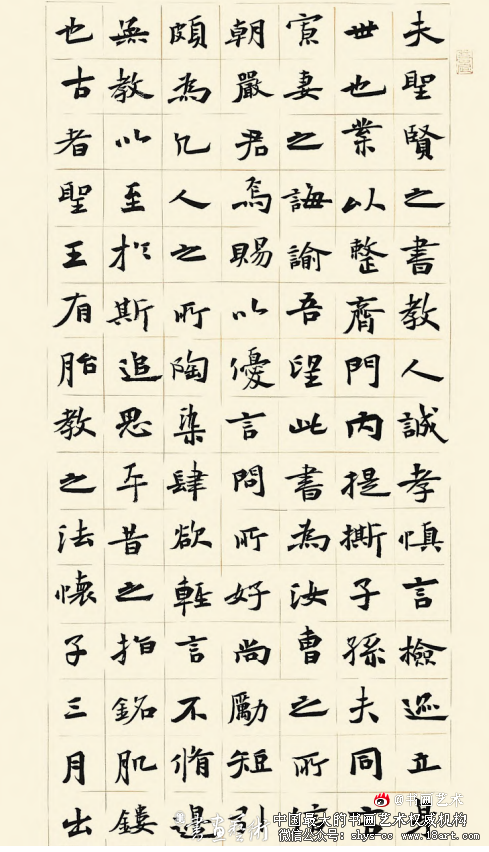 夫聖賢之書教人誠孝慎言檢迹立身
世也業以整齊門內提撕子孫夫同
寡妻之誨諭吾望此書為汝曹之所
朝嚴君焉賜以優言問所好尚勵短引
頗為凡人之所陶染肆欲輕言不脩邊
無教以至於斯追思平昔之指銘肌鏤
也古者聖王有胎教之法懷子三月出
@书画艺术
書画藝術
中国最大的书画艺术权威机构
微信公众号：shye-cc www.18art.com